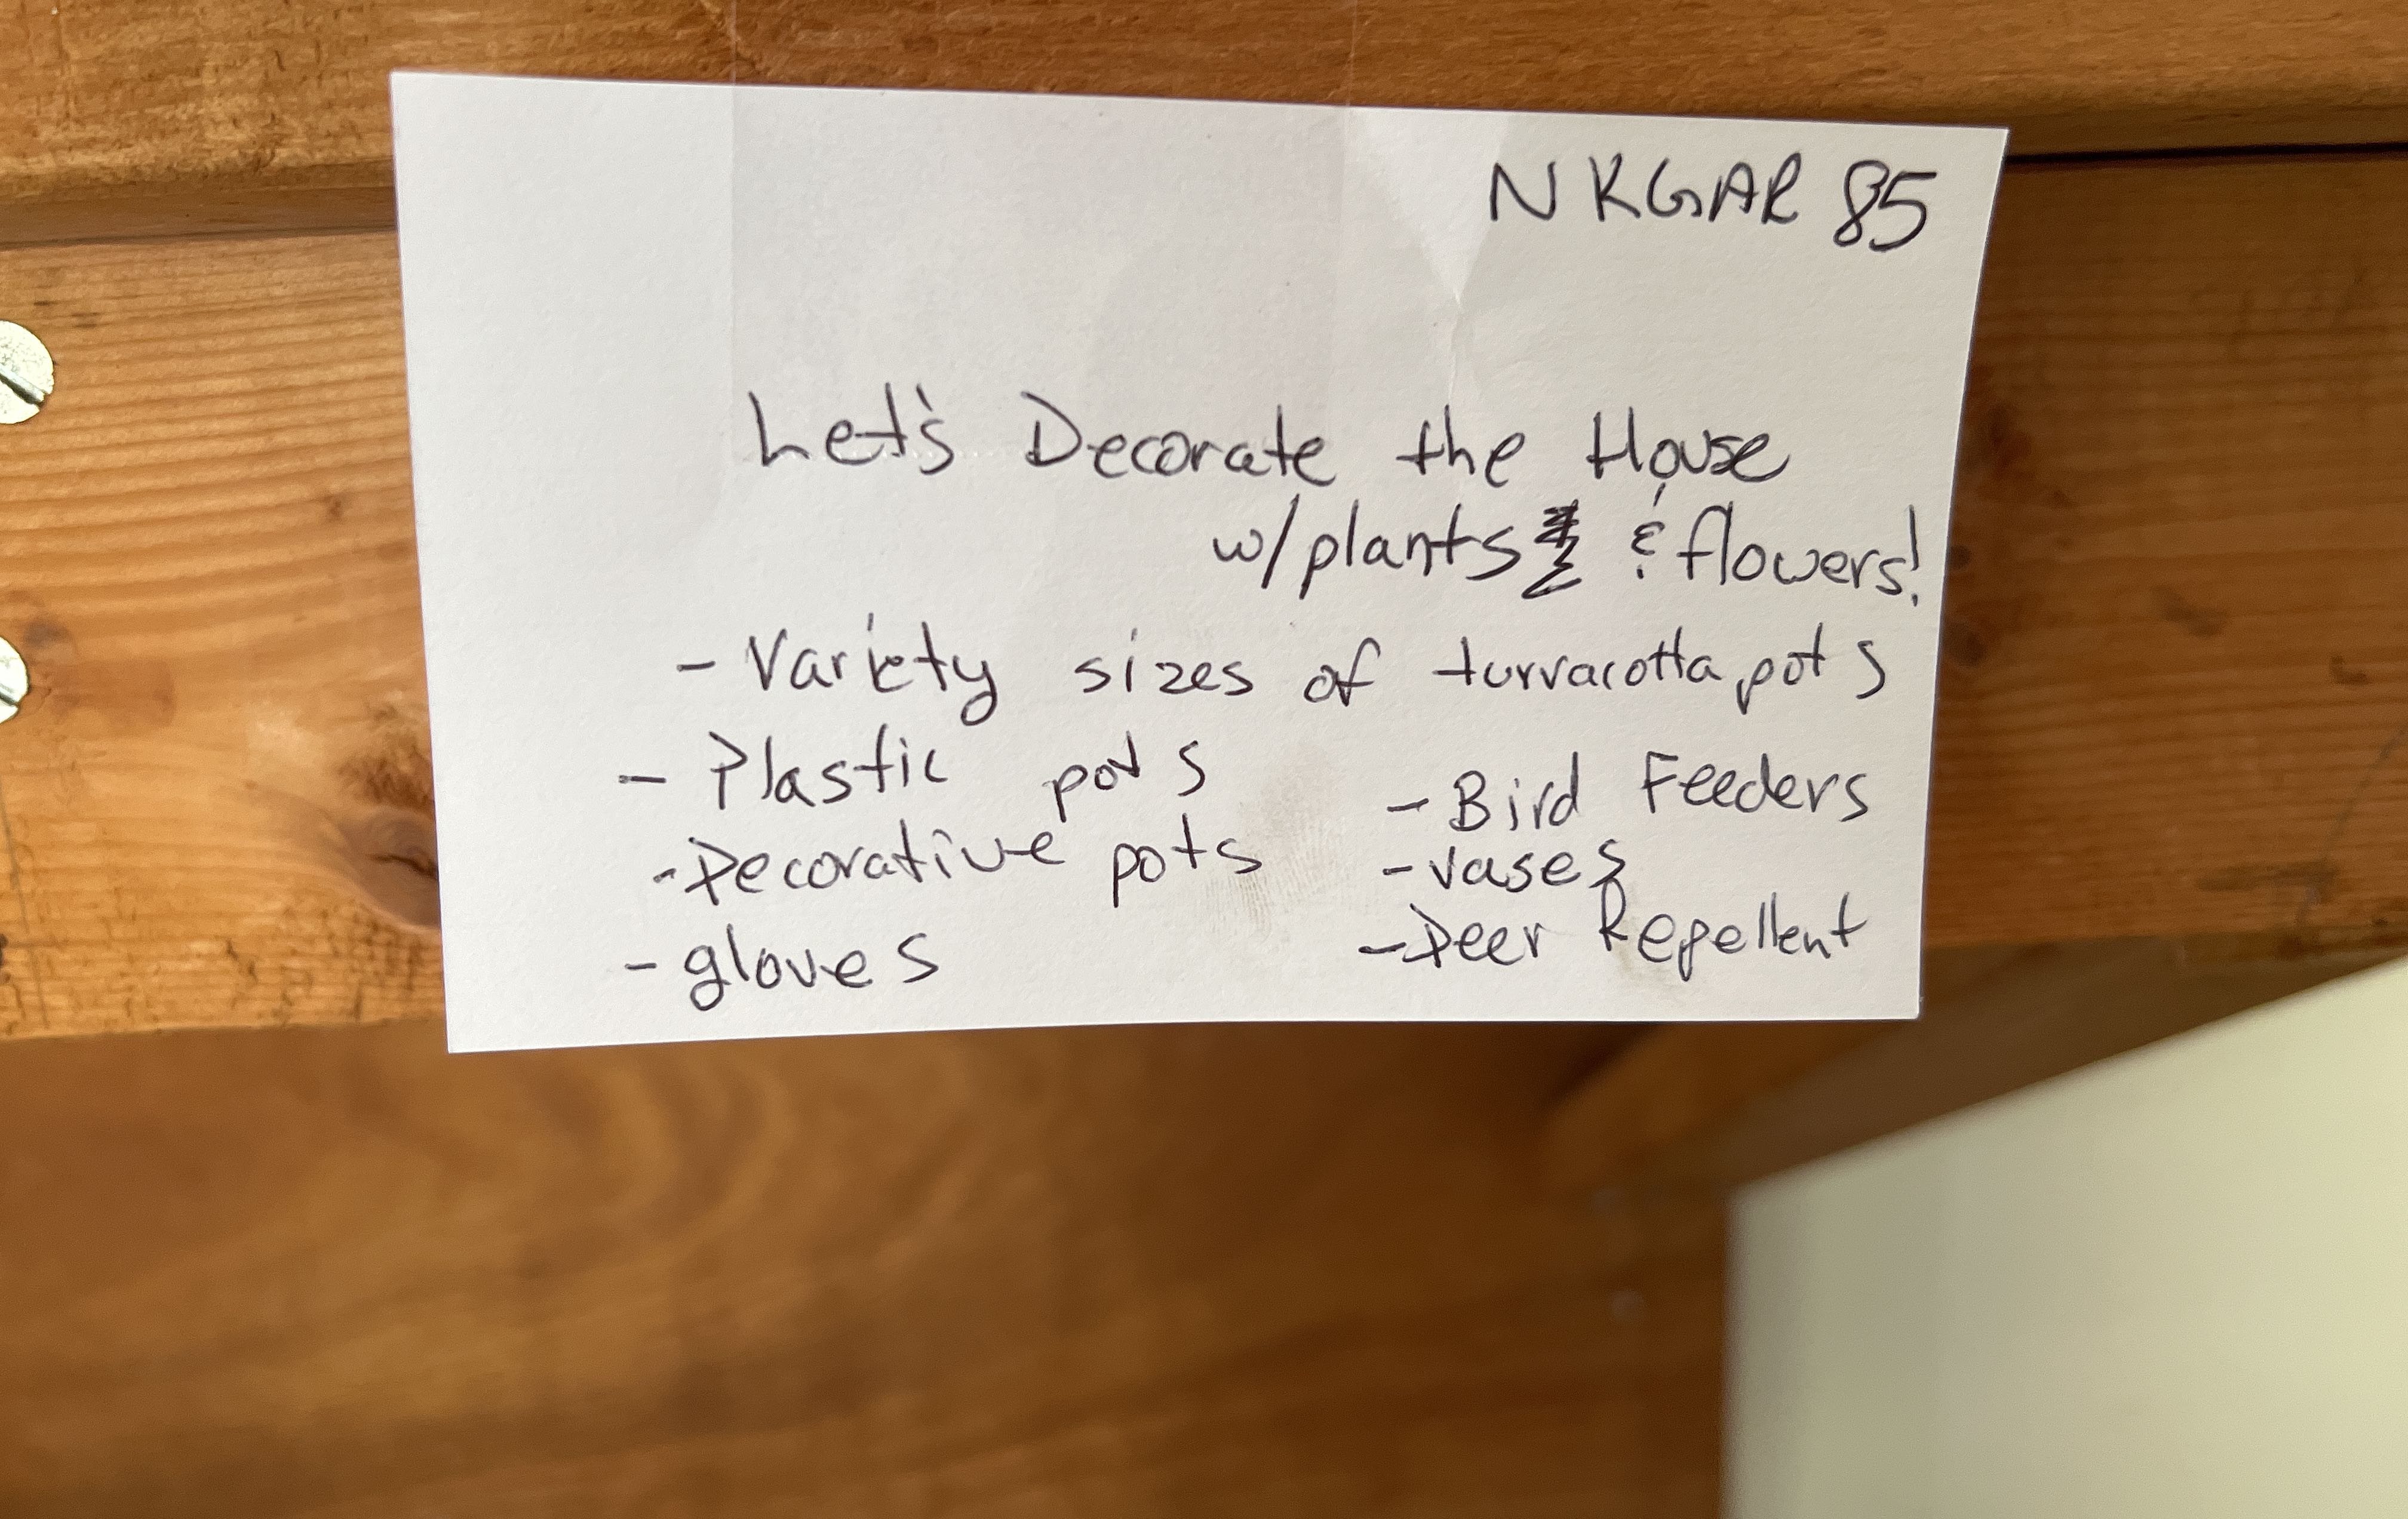 NKGAR 85
Let's Decorate the House
w/plants & flowers!
- Variety sizes of turracotta pots
- Plastic pots
- Decorative pots
- gloves
- Bird Feeders
- vases
- Deer Repellent